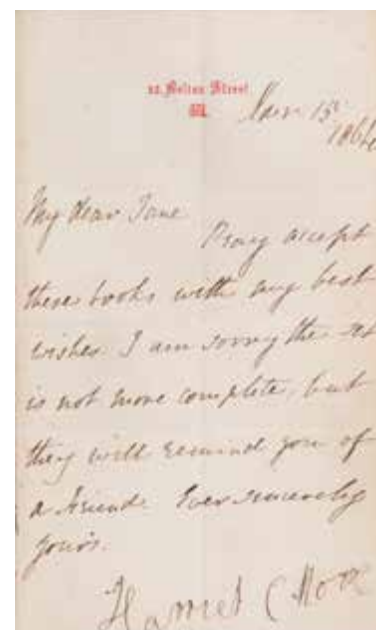 Bolton Street
W.
15
My dear Jane
Pray accept
these books with my best
wishes. I am sorry the set
is not more complete, but
they will remind you of
a friend. Ever sincerely
yours.
Harriet C Moore